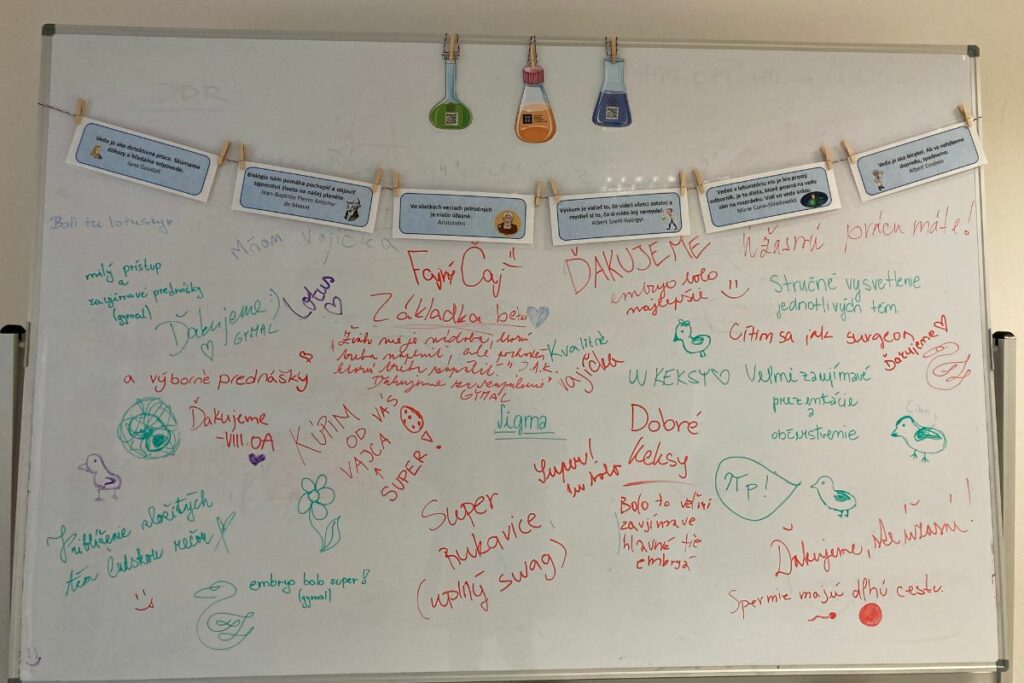 DDR
Veda je ako detektívna práca. Skúmame
dôkazy a hľadáme odpovede.
Jane Goodall
Biológia nám pomáha pochopiť a objaviť
tajomstvá života na našej planéte.
Jean-Baptiste Pierre Antoine
de Monet
Vo všetkých veciach prírodných
je niečo úžasné.
Aristoteles
Výskum je vidieť to, čo videli všetci ostatní a
myslieť si to, čo si nikto iný nemyslel.
Albert Szent-Györgyi
Vedec v laboratóriu nie je len prostý
odborník, je to dieťa, ktoré pozerá na vedu
ako na rozprávku. Vidí vo vede krásu
Marie Curie-Skłodowská
Veda je ako bicykel. Ak sa nehýbeme
dopredu, spadneme.
Albert Einstein
Boli tu lotusky
Mňam vajíčka
Fajný Čaj
ĎAKUJEME
Úžasnú prácu máte!
milý prístup
a
zaujímavé prednášky
(gymal)
Ďakujeme :)
GYMAL
Lotus
Základka
embryo bolo
najlepšie
Stručné vysvetlenie
jednotlivých tém
"Žiak nie je nádoba, ktorú
treba naplniť, ale pochodeň,
ktorú treba zapáliť." J.A.K.
Ďakujeme za zapálenie
GYMAL
Kvalitné
vajíčka
Cítim sa jak surgeon
Ďakujeme
a výborné prednášky
W KEKSY
Veľmi zaujímavé
prezentácie
a
občerstvenie
Ďakujeme
-VIII.OA
KÚPIM
OD VÁS
VAJCA
SUPER!
Sigma
Dobré
keksy
Super!
Priblíženie zložitých
tém ľudskou rečou
Super
Rukavice
(uplný swag)
Bolo to veľmi
zaujímavé
hlavne tie
embryá
Ďakujeme, ste úžasní!
embryo bolo super!
(gymal)
Spermie majú dlhú cestu.